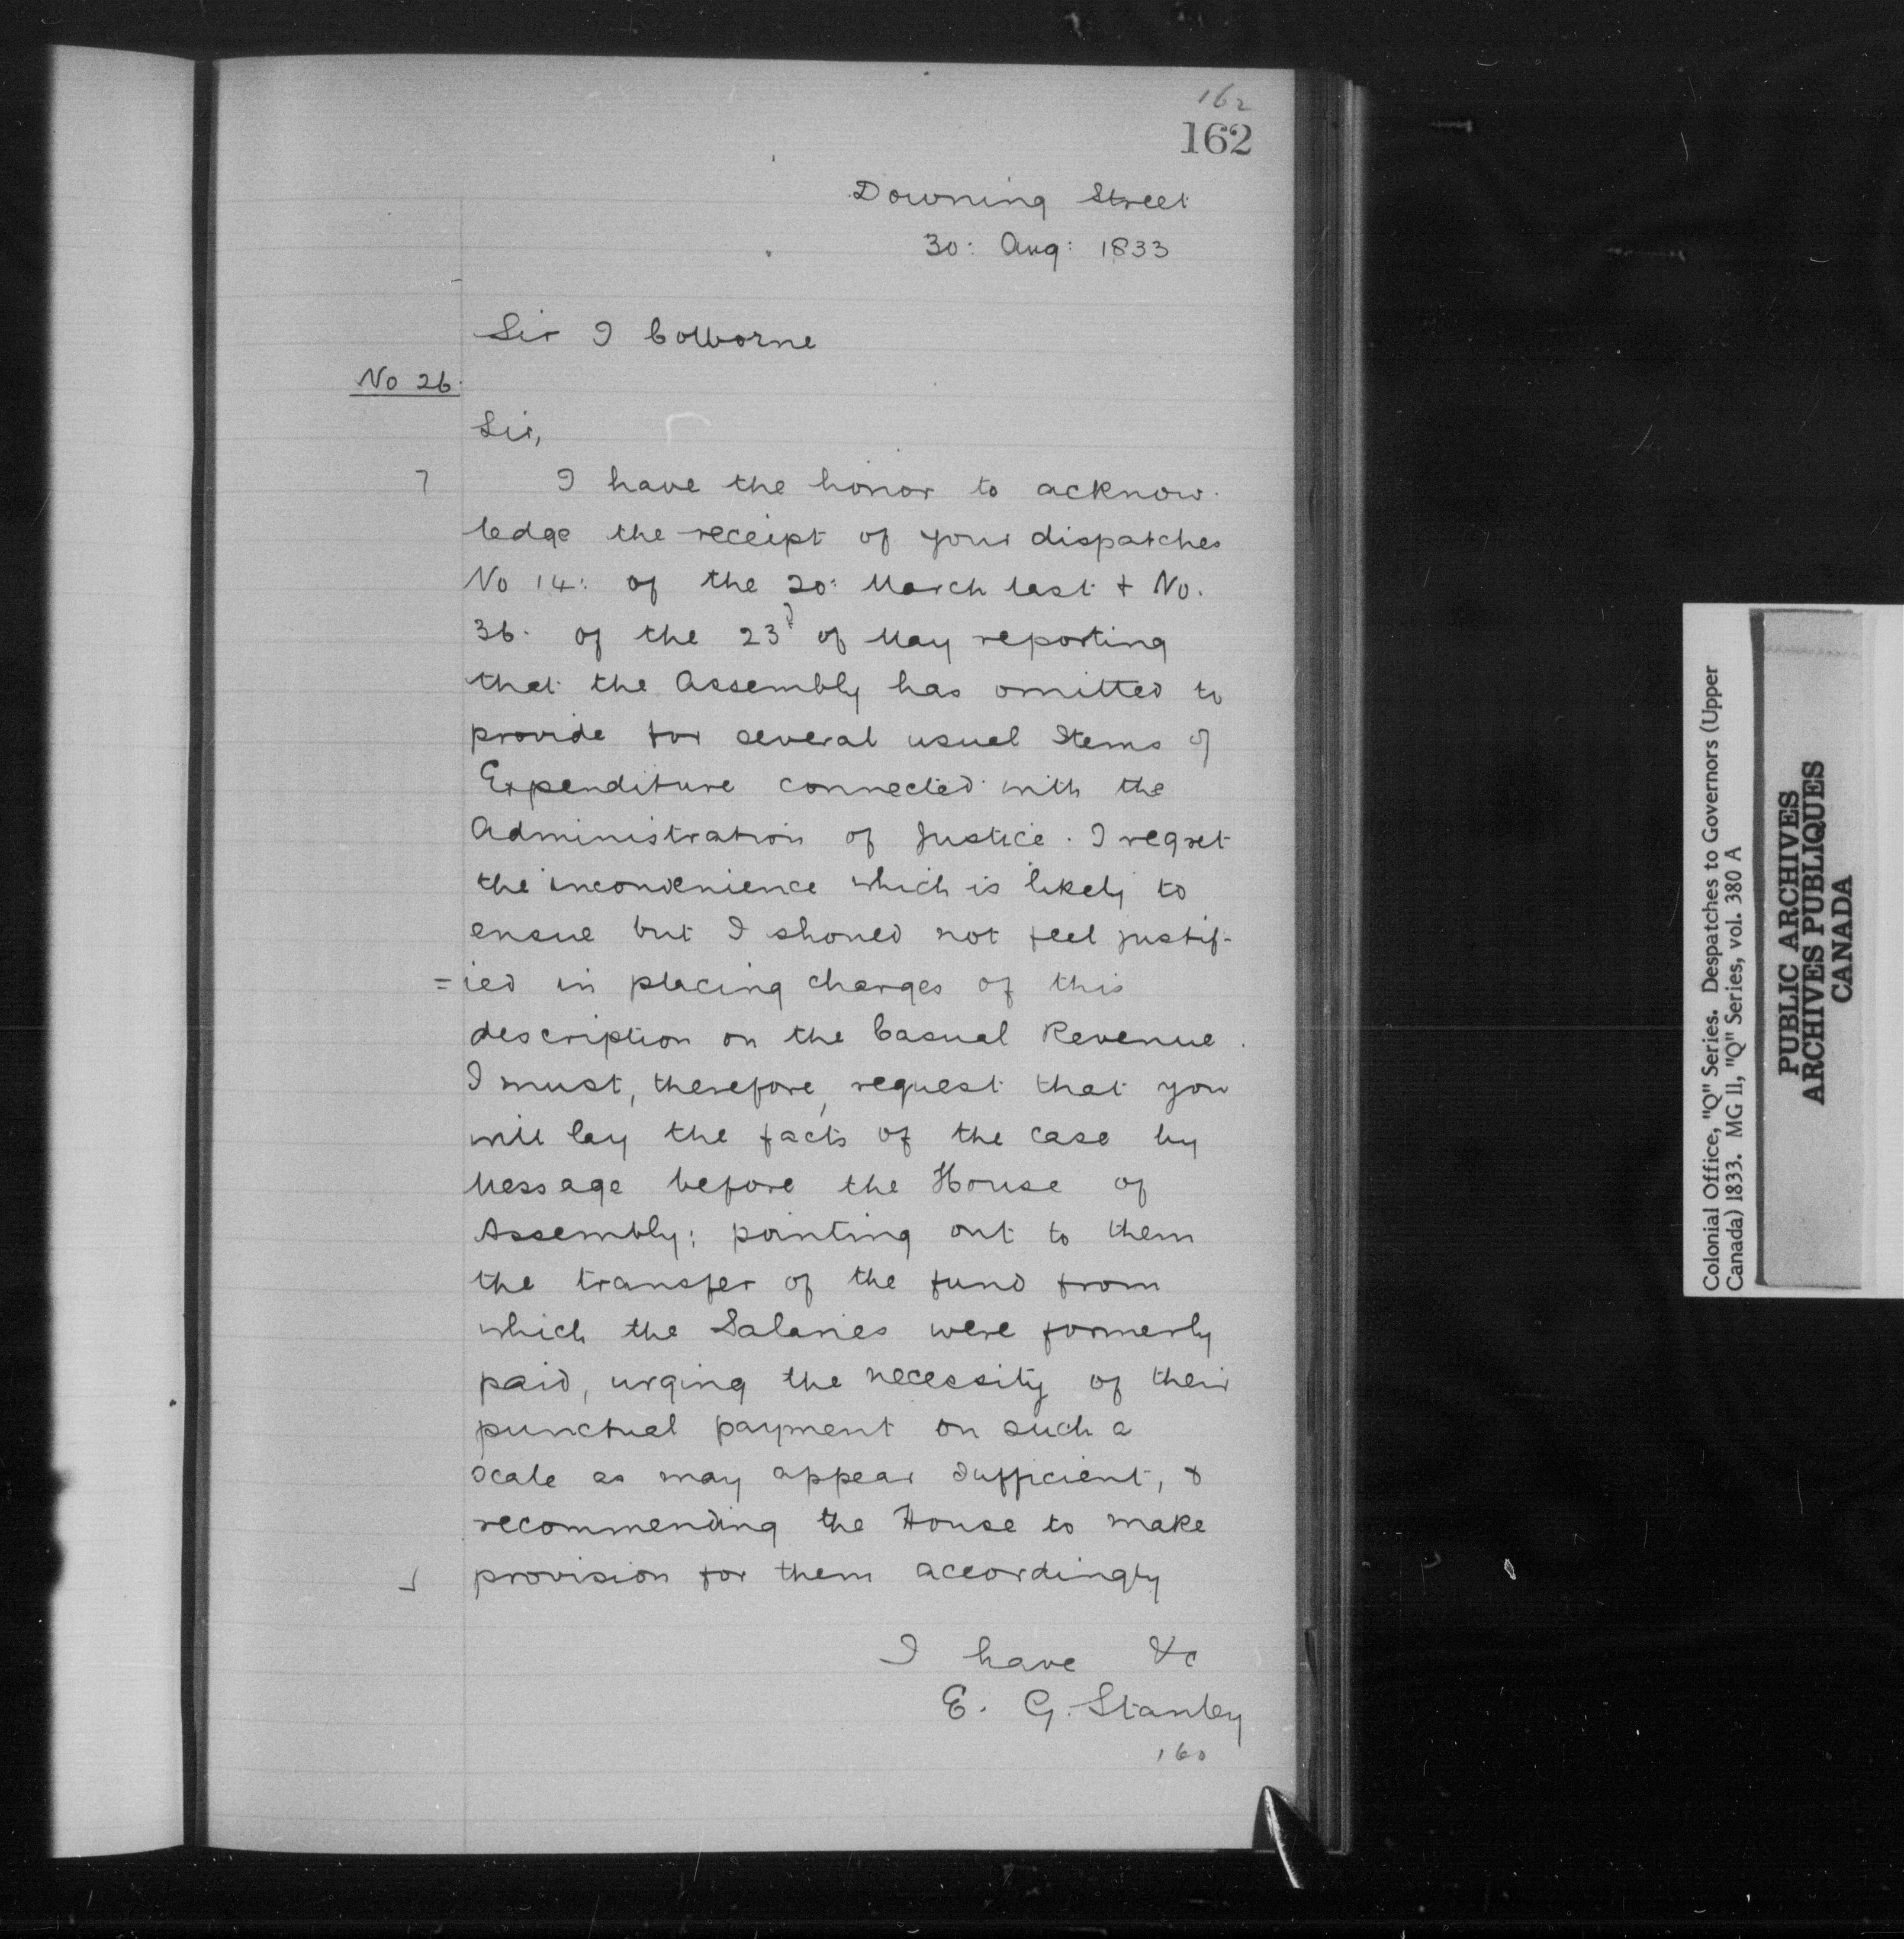 162
162
Downing Street
30: Aug: 1833
Sir J Colborne
No 26.
Sir,
I have the honor to acknow-
ledge the receipt of your dispatches
No 14: of the 20: March last & No.
36. of the 23d of May reporting
that the Assembly has omitted to
provide for several usual Items of
Expenditure connected with the
Administration of Justice. I regret
the inconvenience which is likely to
ensue but I should not feel justif-
=ied in placing charges of this
description on the Casual Revenue.
I must, therefore, request that you
will lay the facts of the case by
Message before the House of
Assembly; pointing out to them
the transfer of the fund from
which the Salaries were formerly
paid, urging the necessity of their
punctual payment on such a
scale as may appear sufficient, &
recommending the House to make
provision for them accordingly
I have &c
E. G. Stanley
160
Colonial Office, "Q" Series. Despatches to Governors (Upper
Canada) 1833. MG 11, "Q" Series, vol. 380 A
PUBLIC ARCHIVES
ARCHIVES PUBLIQUES
CANADA